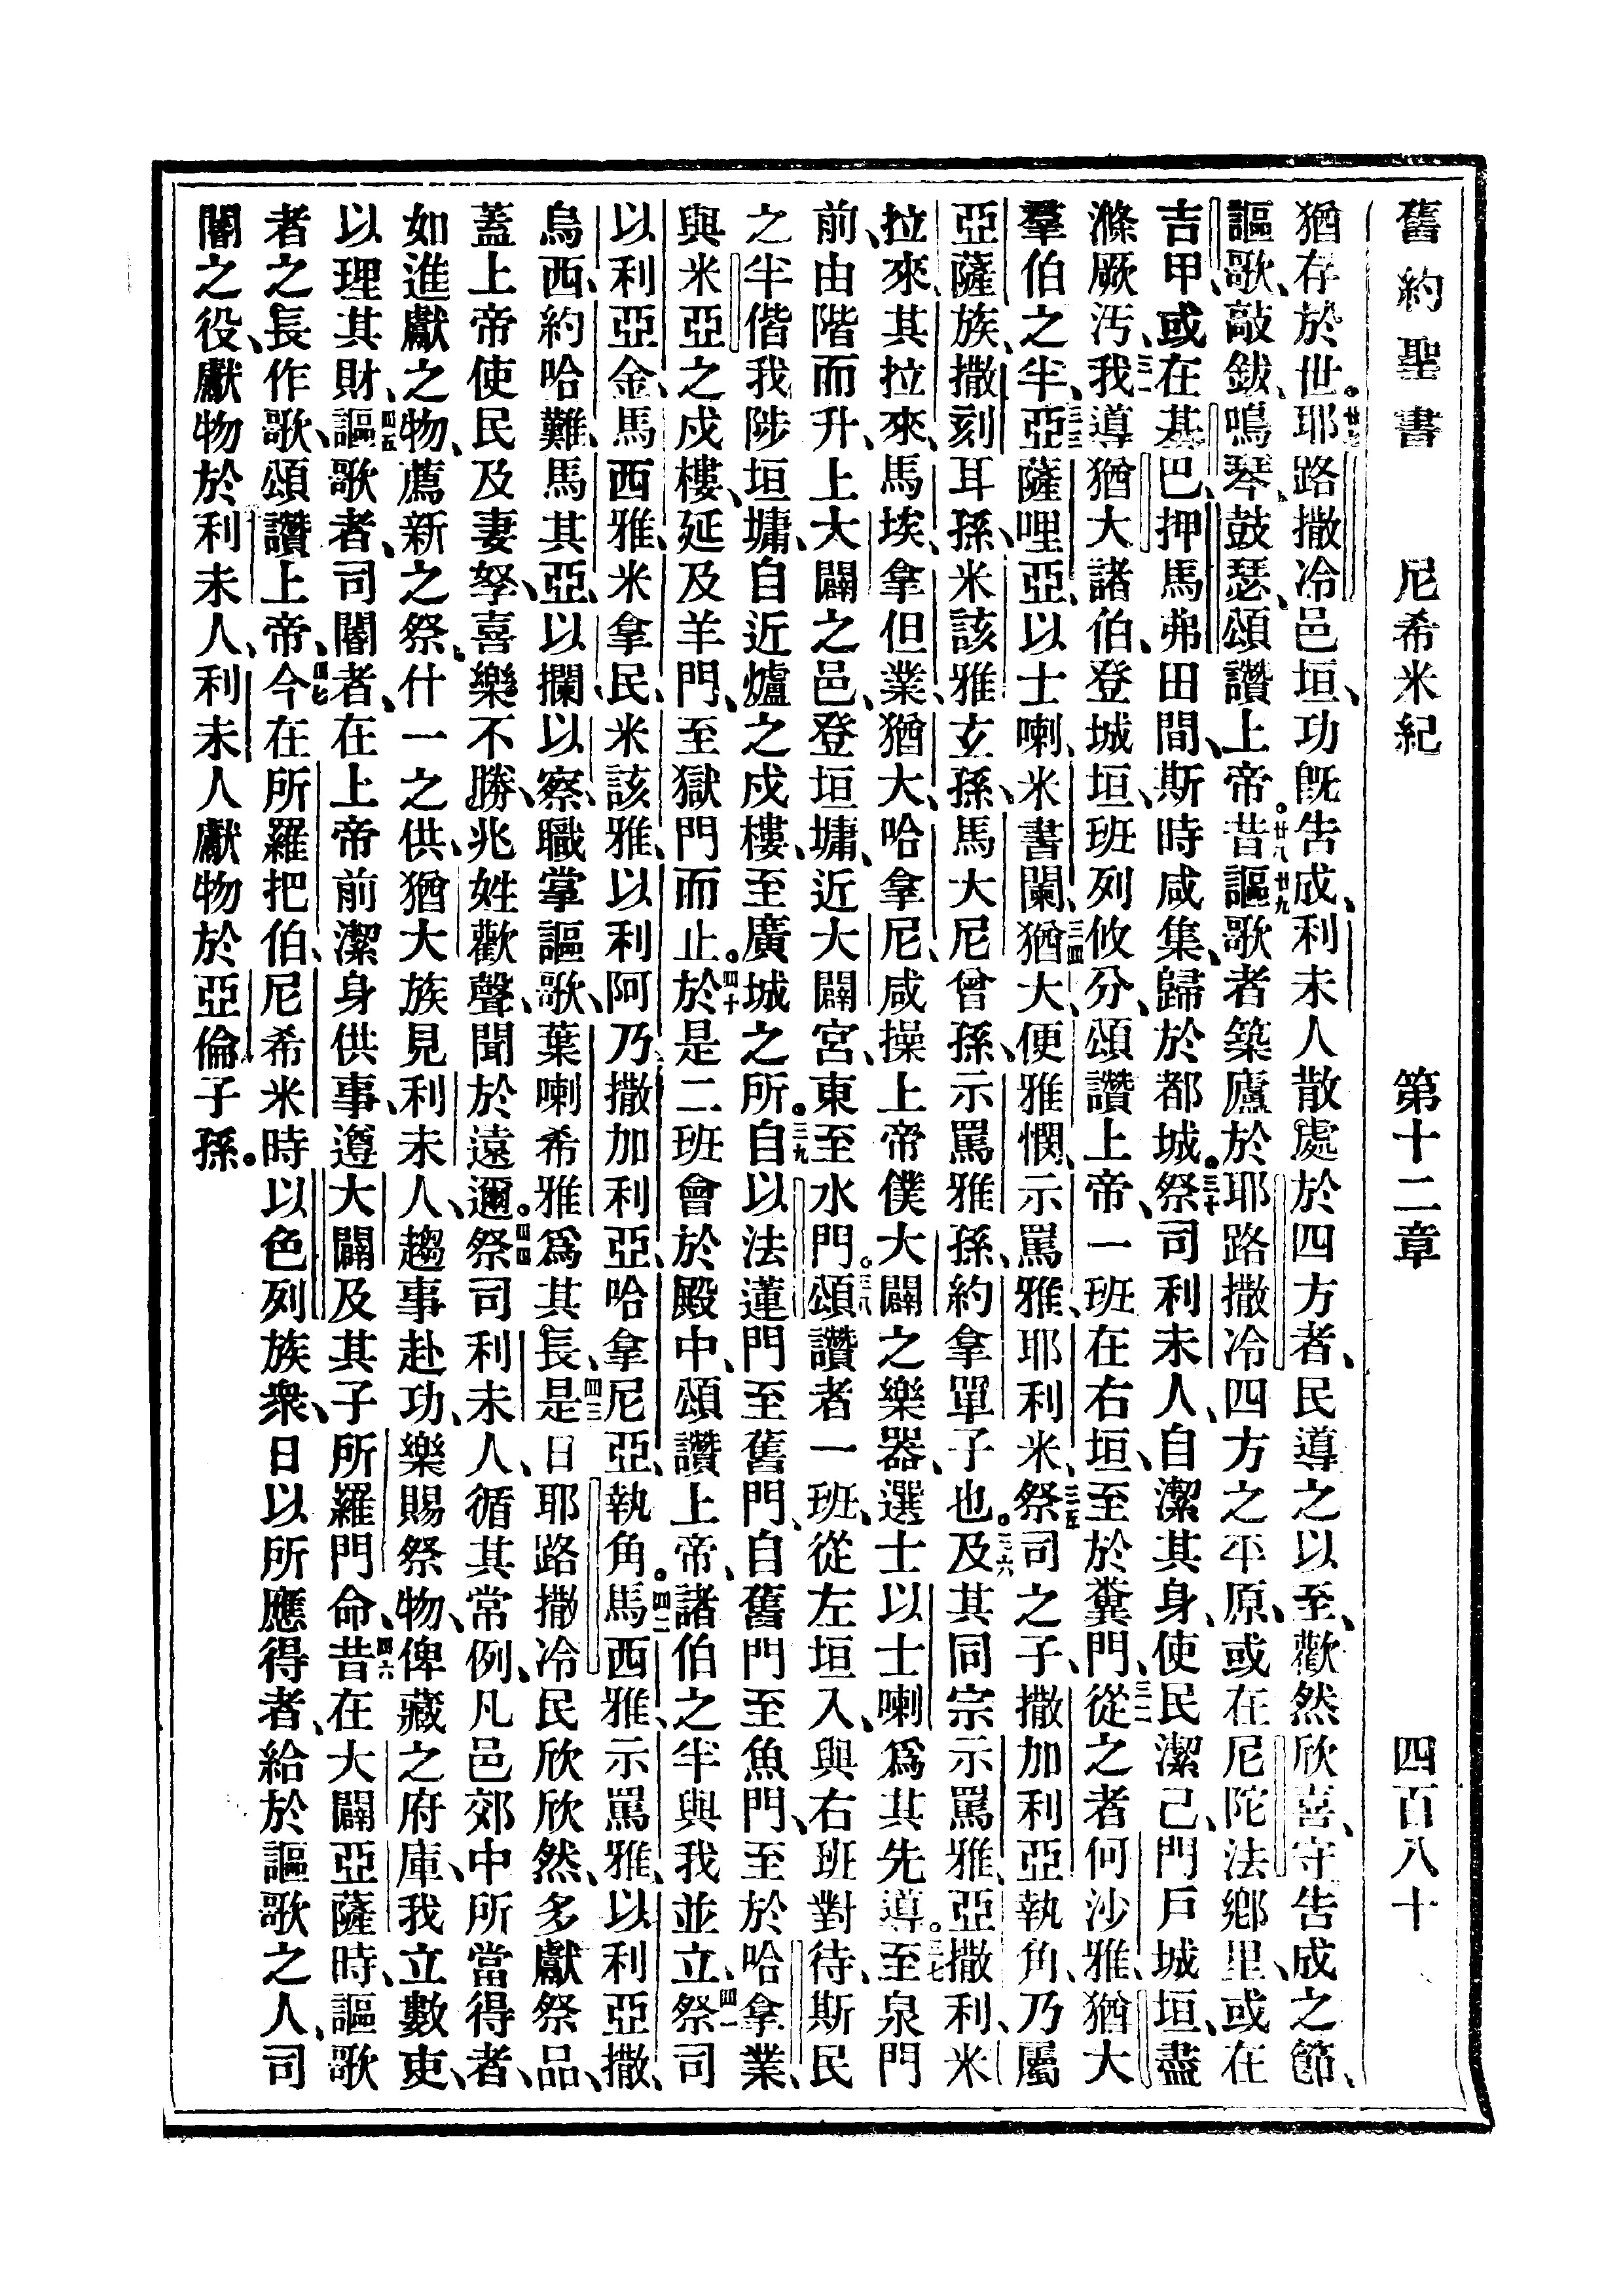 舊約聖書 尼希米紀 第十二章 四百八十
猶存於世。廿七耶路撒冷邑垣、功旣告成、利未人散處於四方者、民導之以至、歡然欣喜、守告成之節、
謳歌、敲鈸、鳴琴、鼓瑟、頌讚上帝。廿八昔廿九謳歌者築廬於耶路撒冷四方之平原、或在尼陀法鄉里、或在
吉甲、或在基巴、押馬弗田間、斯時咸集、歸於都城。三十祭司利未人、自潔其身、使民潔己、門戶城垣、盡
滌厥汚、三一我導猶大諸伯、登城垣、班列攸分、頌讚上帝、一班在右垣、至於糞門、三二從之者何沙雅、猶大
羣伯之半、三三亞薩哩亞、以士喇、米書闌、三四猶大、便雅憫、示罵雅、耶利米、三五祭司之子、撒加利亞執角、乃屬
亞薩族、撒刻耳孫、米該雅玄孫、馬大尼曾孫、示罵雅孫、約拿單子也。三六及其同宗示罵雅、亞撒利、米
拉來、其拉來、馬埃、拿但業、猶大、哈拿尼、咸操上帝僕大闢之樂器、選士以士喇爲其先導。三七至泉門
前、由階而升、上大闢之邑、登垣墉、近大闢宮、東至水門。三八頌讚者一班、從左垣入、與右班對待、斯民
之半偕我陟垣墉、自近爐之戍樓、至廣城之所。三九自以法蓮門至舊門、自舊門至魚門、至於哈拿業、
與米亞之戍樓、延及羊門、至獄門而止。四十於是二班會於殿中、頌讚上帝、諸伯之半與我並立、四一祭司
以利亞金、馬西雅、米拿民、米該雅、以利阿乃、撒加利亞、哈拿尼亞、執角。四二馬西雅、示罵雅、以利亞撒、
烏西、約哈難、馬其亞、以攔、以察、職掌謳歌、葉喇希雅爲其長、四三是日耶路撒冷民欣欣然、多獻祭品、
蓋上帝使民及妻孥、喜樂不勝、兆姓歡聲、聞於遠邇。四四祭司利未人、循其常例、凡邑郊中所當得者、
如進獻之物、薦新之祭、什一之供、猶大族見利未人、趨事赴功、樂賜祭物、俾藏之府庫、我立數吏、
以理其財、四五謳歌者、司閽者、在上帝前潔身供事、遵大闢及其子所羅門命、四六昔在大闢亞薩時、謳歌
者之長作歌、頌讚上帝、四七今在所羅把伯、尼希米時、以色列族衆、日以所應得者、給於謳歌之人、司
閽之役、獻物於利未人、利未人獻物於亞倫子孫。